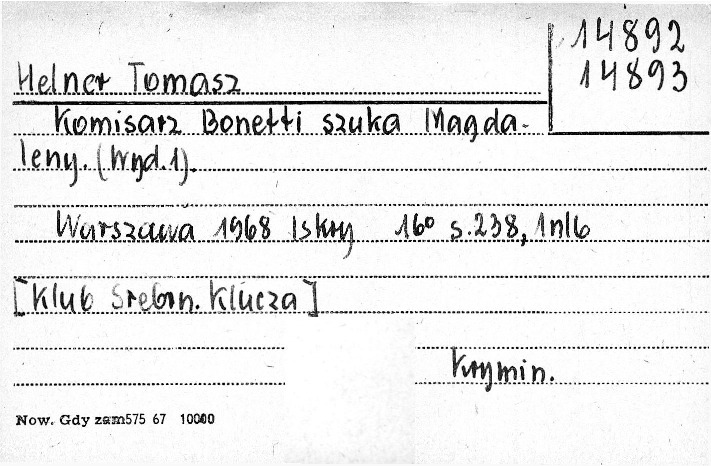 14892
14893
Helner Tomasz
Komisarz Bonetti szuka Magda-
leny. (Wyd.1).
Warszawa 1968 Iskry 16° s.238, 1nlb
[Klub Srebrn. Klucza]
Krymin.
Now. Gdy zam 575 67 10000